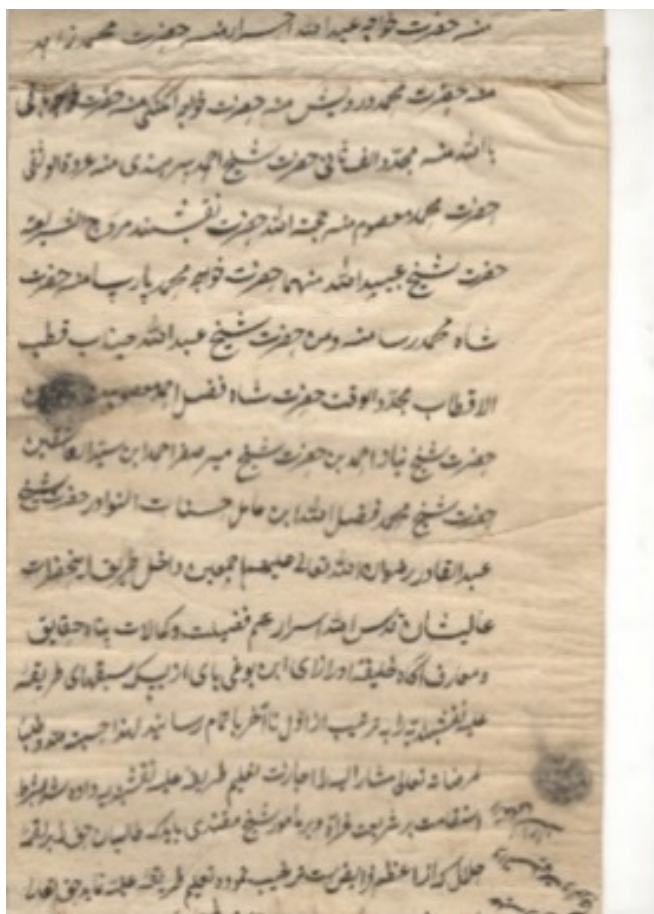 منه حضرت خواجه عبد الله احرار منه حضرت محمد زاهد
منه حضرت محمد درویش منه حضرت خواجه امکنگی منه حضرت خواجه باقی
بالله منه مجدد الف ثانی حضرت شیخ احمد سرهندی منه عروة الوثقی
حضرت محمد معصوم منه حجة الله حضرت نقشبند مروج الشریعة
حضرت شیخ عبید الله منهما حضرت خواجه محمد پارسا منه حضرت
شاه محمد رسا منه ومن حضرت شیخ عبد الله جناب قطب
الاقطاب مجدد الوقت حضرت شاه فضل احمد معصومی
حضرت شیخ نیاز احمد بن حضرت شیخ میر صفر احمد ابن سید العاشقین
حضرت شیخ محمد فضل الله ابن عامل حسنات النوادر حضرت شیخ
عبد القادر رضوان الله تعالی علیهم اجمعین داخل طریق اینحضرات
عالیشان قدس الله اسرارهم فضیلت وکمالات پناه حقایق
ومعارف آگاه خلیفه ابن بای ازبک سبقهای طریقه
علیه نقشبندیه را به ترغیب از اول تا آخر باتمام رسانید لهذا حسبة لله وطلبا
لمرضاته تعالی مشار الیه را اجازت تعلیم طریقه علیه نقشبندیه داده شد بشرط
استقامت بر شریعت غراء وبر مأمور شیخ مقتدی باید که طالبان حق را بلقمه
حلال که از اعظم فرایض است ترغیب نموده تعلیم طریقه علیه نماید حق تعالی